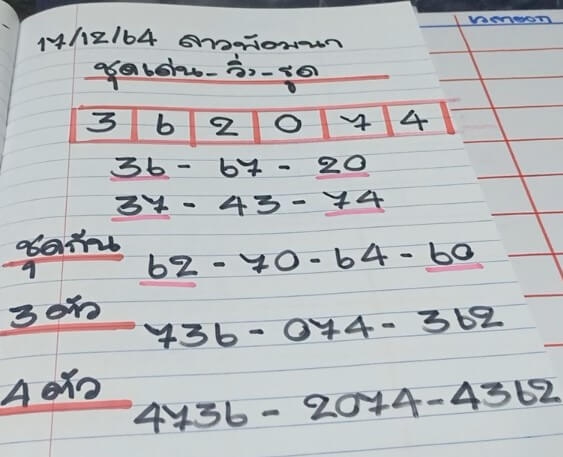 17/12/64 ลาวพัฒนา
ชุดเด่น-วิ่ง-รูด
3 6 2 0 7 4
36 - 67 - 20
37 - 43 - 74
ชุดกัน 62 - 70 - 64 - 60
3 ตัว 736 - 074 - 362
4 ตัว 4736 - 2074 - 4362